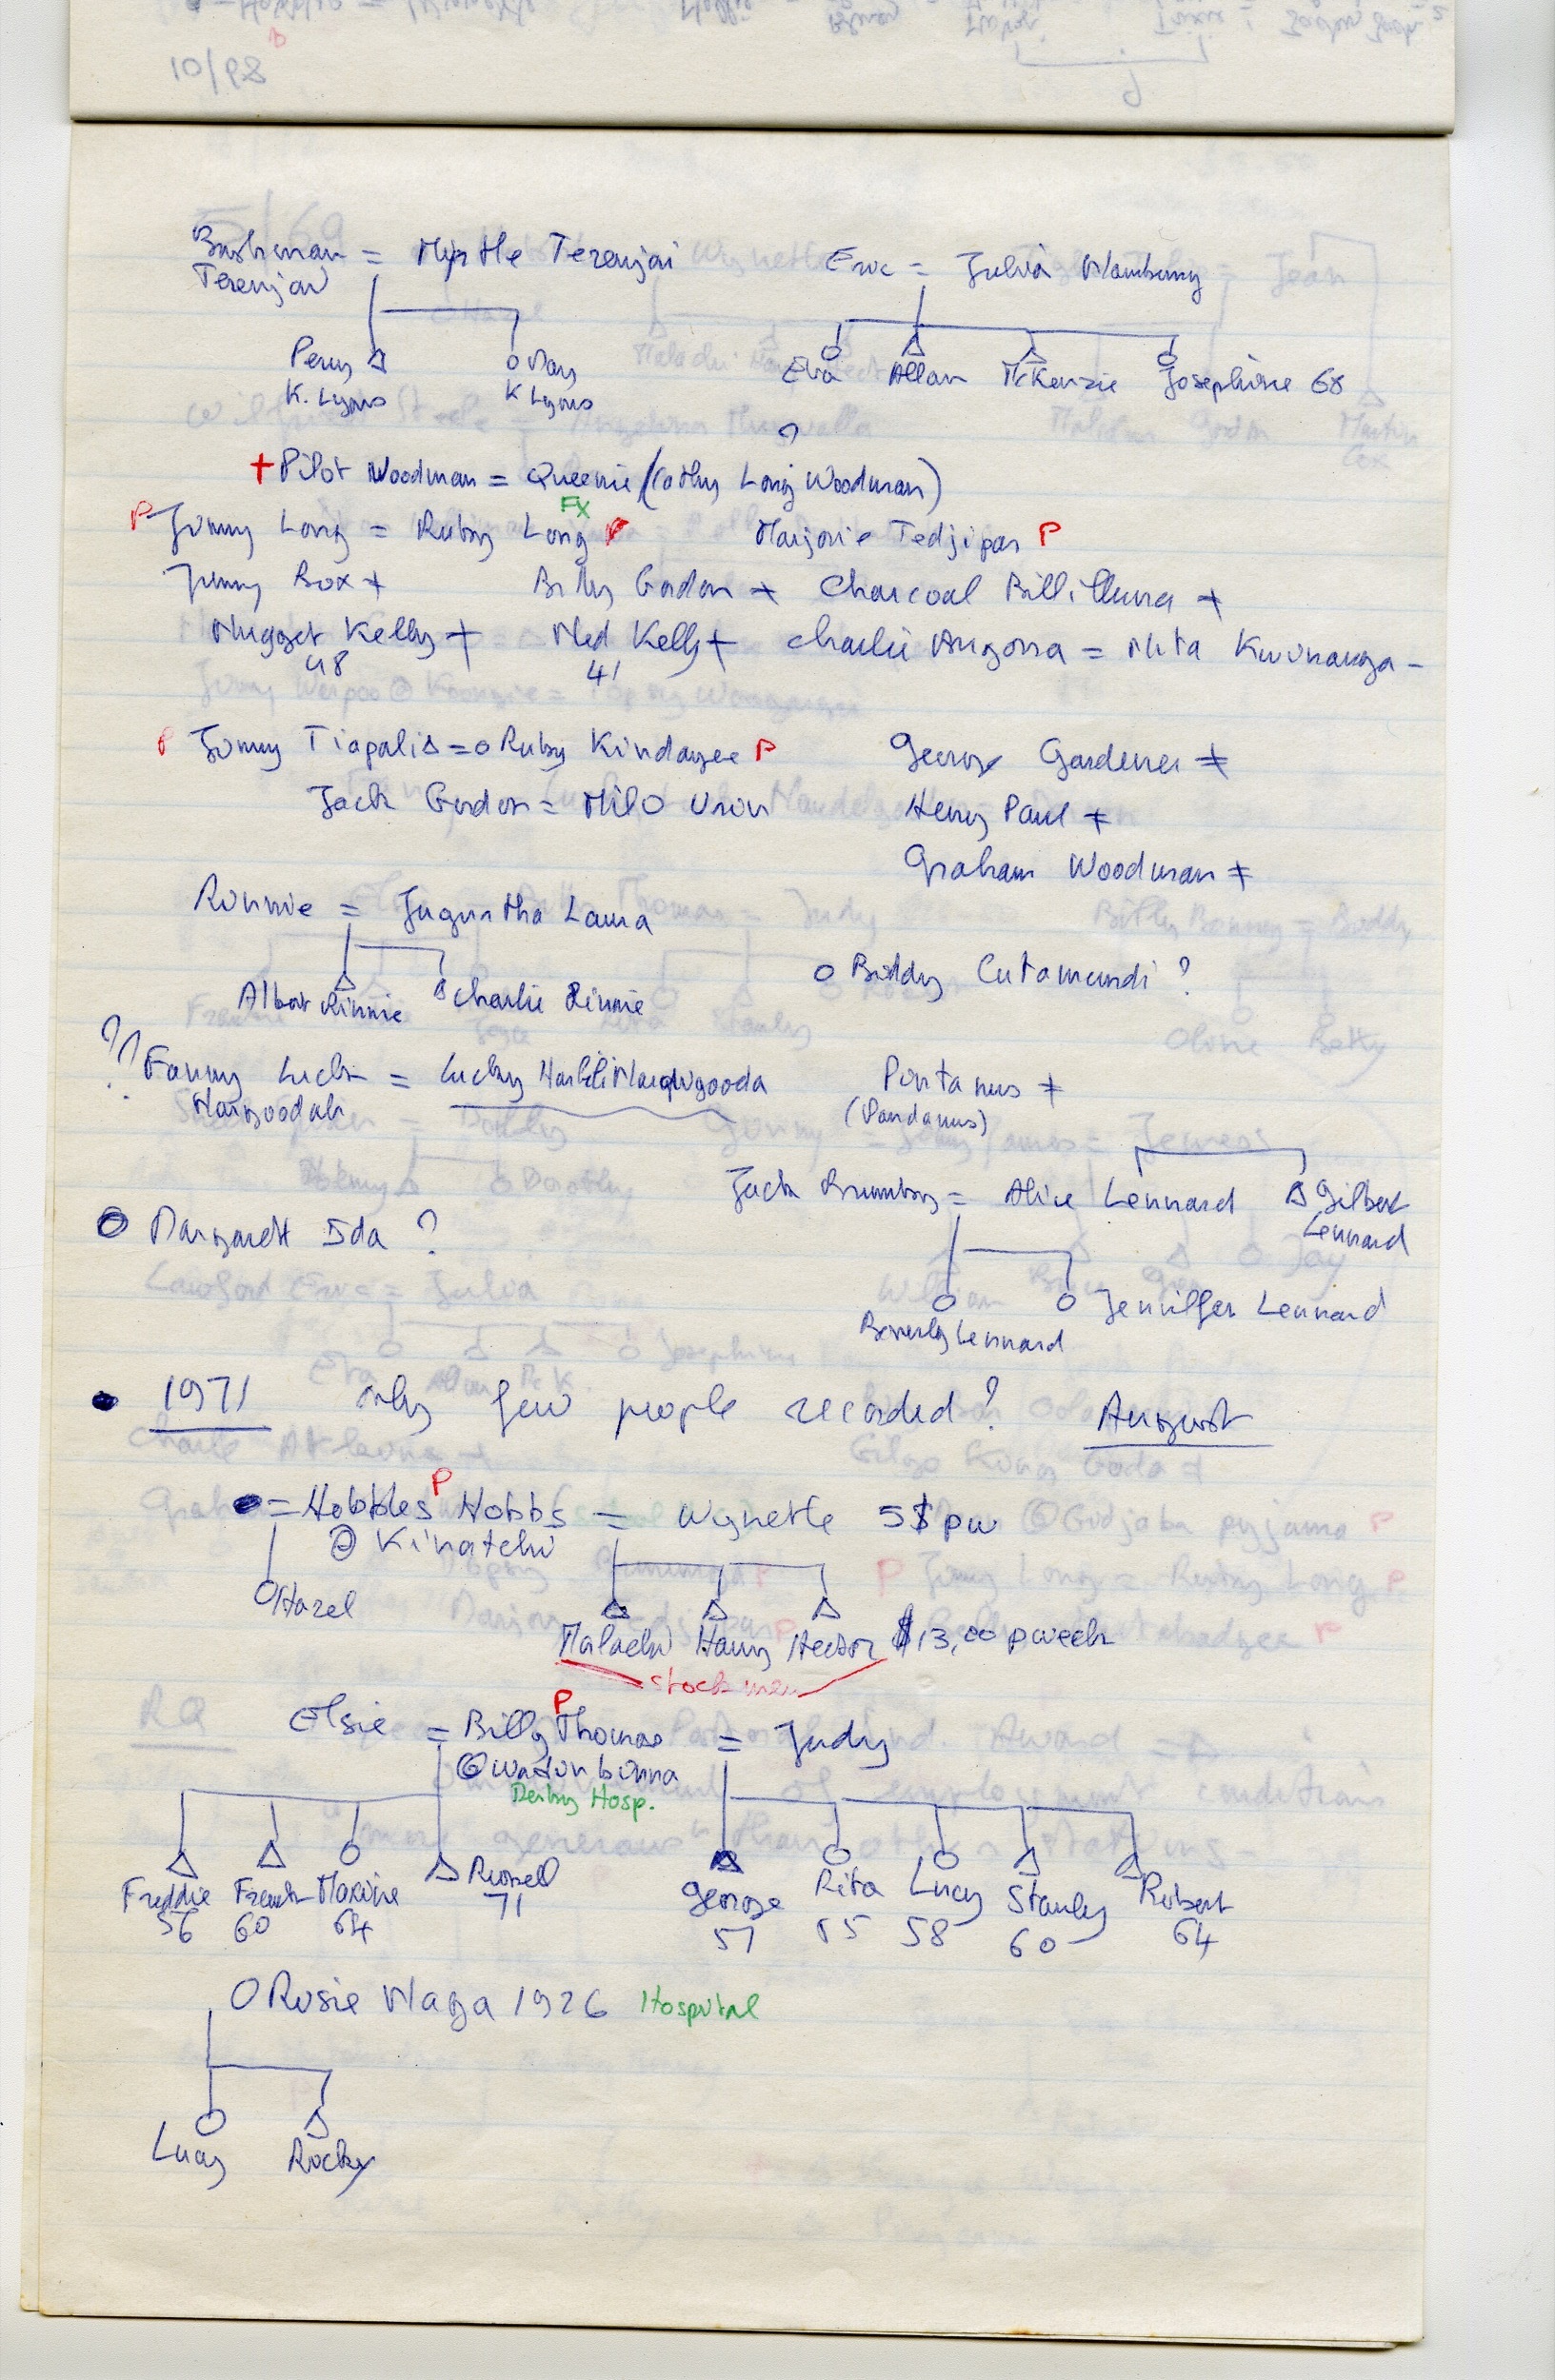 10/98
Bushman = Myrtle Terenjai Eric = Julia Wamburry
Terenjai
Percy May Eva Allan McKenzie Josephine 68
K. Lyons K Lyons
?
+ Pilot Woodman = Queenie (Cathy Long Woodman)
FX
P Jimmy Long = Ruby Long P Marjorie Tedjipas P
Jimmy Box + Billy Gordon + Charcoal Billiluna +
Nugget Kelly + Ned Kelly + Charlie Angorra = Nita
48 41
P Jimmy Tiapalis = Ruby Kindayee P George Gardener +
Jack Gordon = Milo Henry Paul +
Graham Woodman +
Rinnie = Jugurtha Laura
Biddy Cutamundi ?
Albert Rinnie Charlie Rinnie
?? Fanny = Lucky Pintanus +
(Pandanus)
Jack Brumby = Alice Lennard Gilbert
Lennard
Margarett Ida ?
Beverly Lennard Jennifer Lennard
1971 only few people recorded? August
= Hobbles P Hobbs = Wynette 5$ pw
@ Kinatchi
Hazel
Malachi Harry Hector $13,00 p week
stock men
Elsie = Billy P Thomas = Judy
Derby Hosp.
Freddie Frank Maxine Russell George Rita Lucy Stanley Robert
56 60 64 71 57 55 58 60 64
Rosie Naga 1926 Hospital
Lucy Rocky